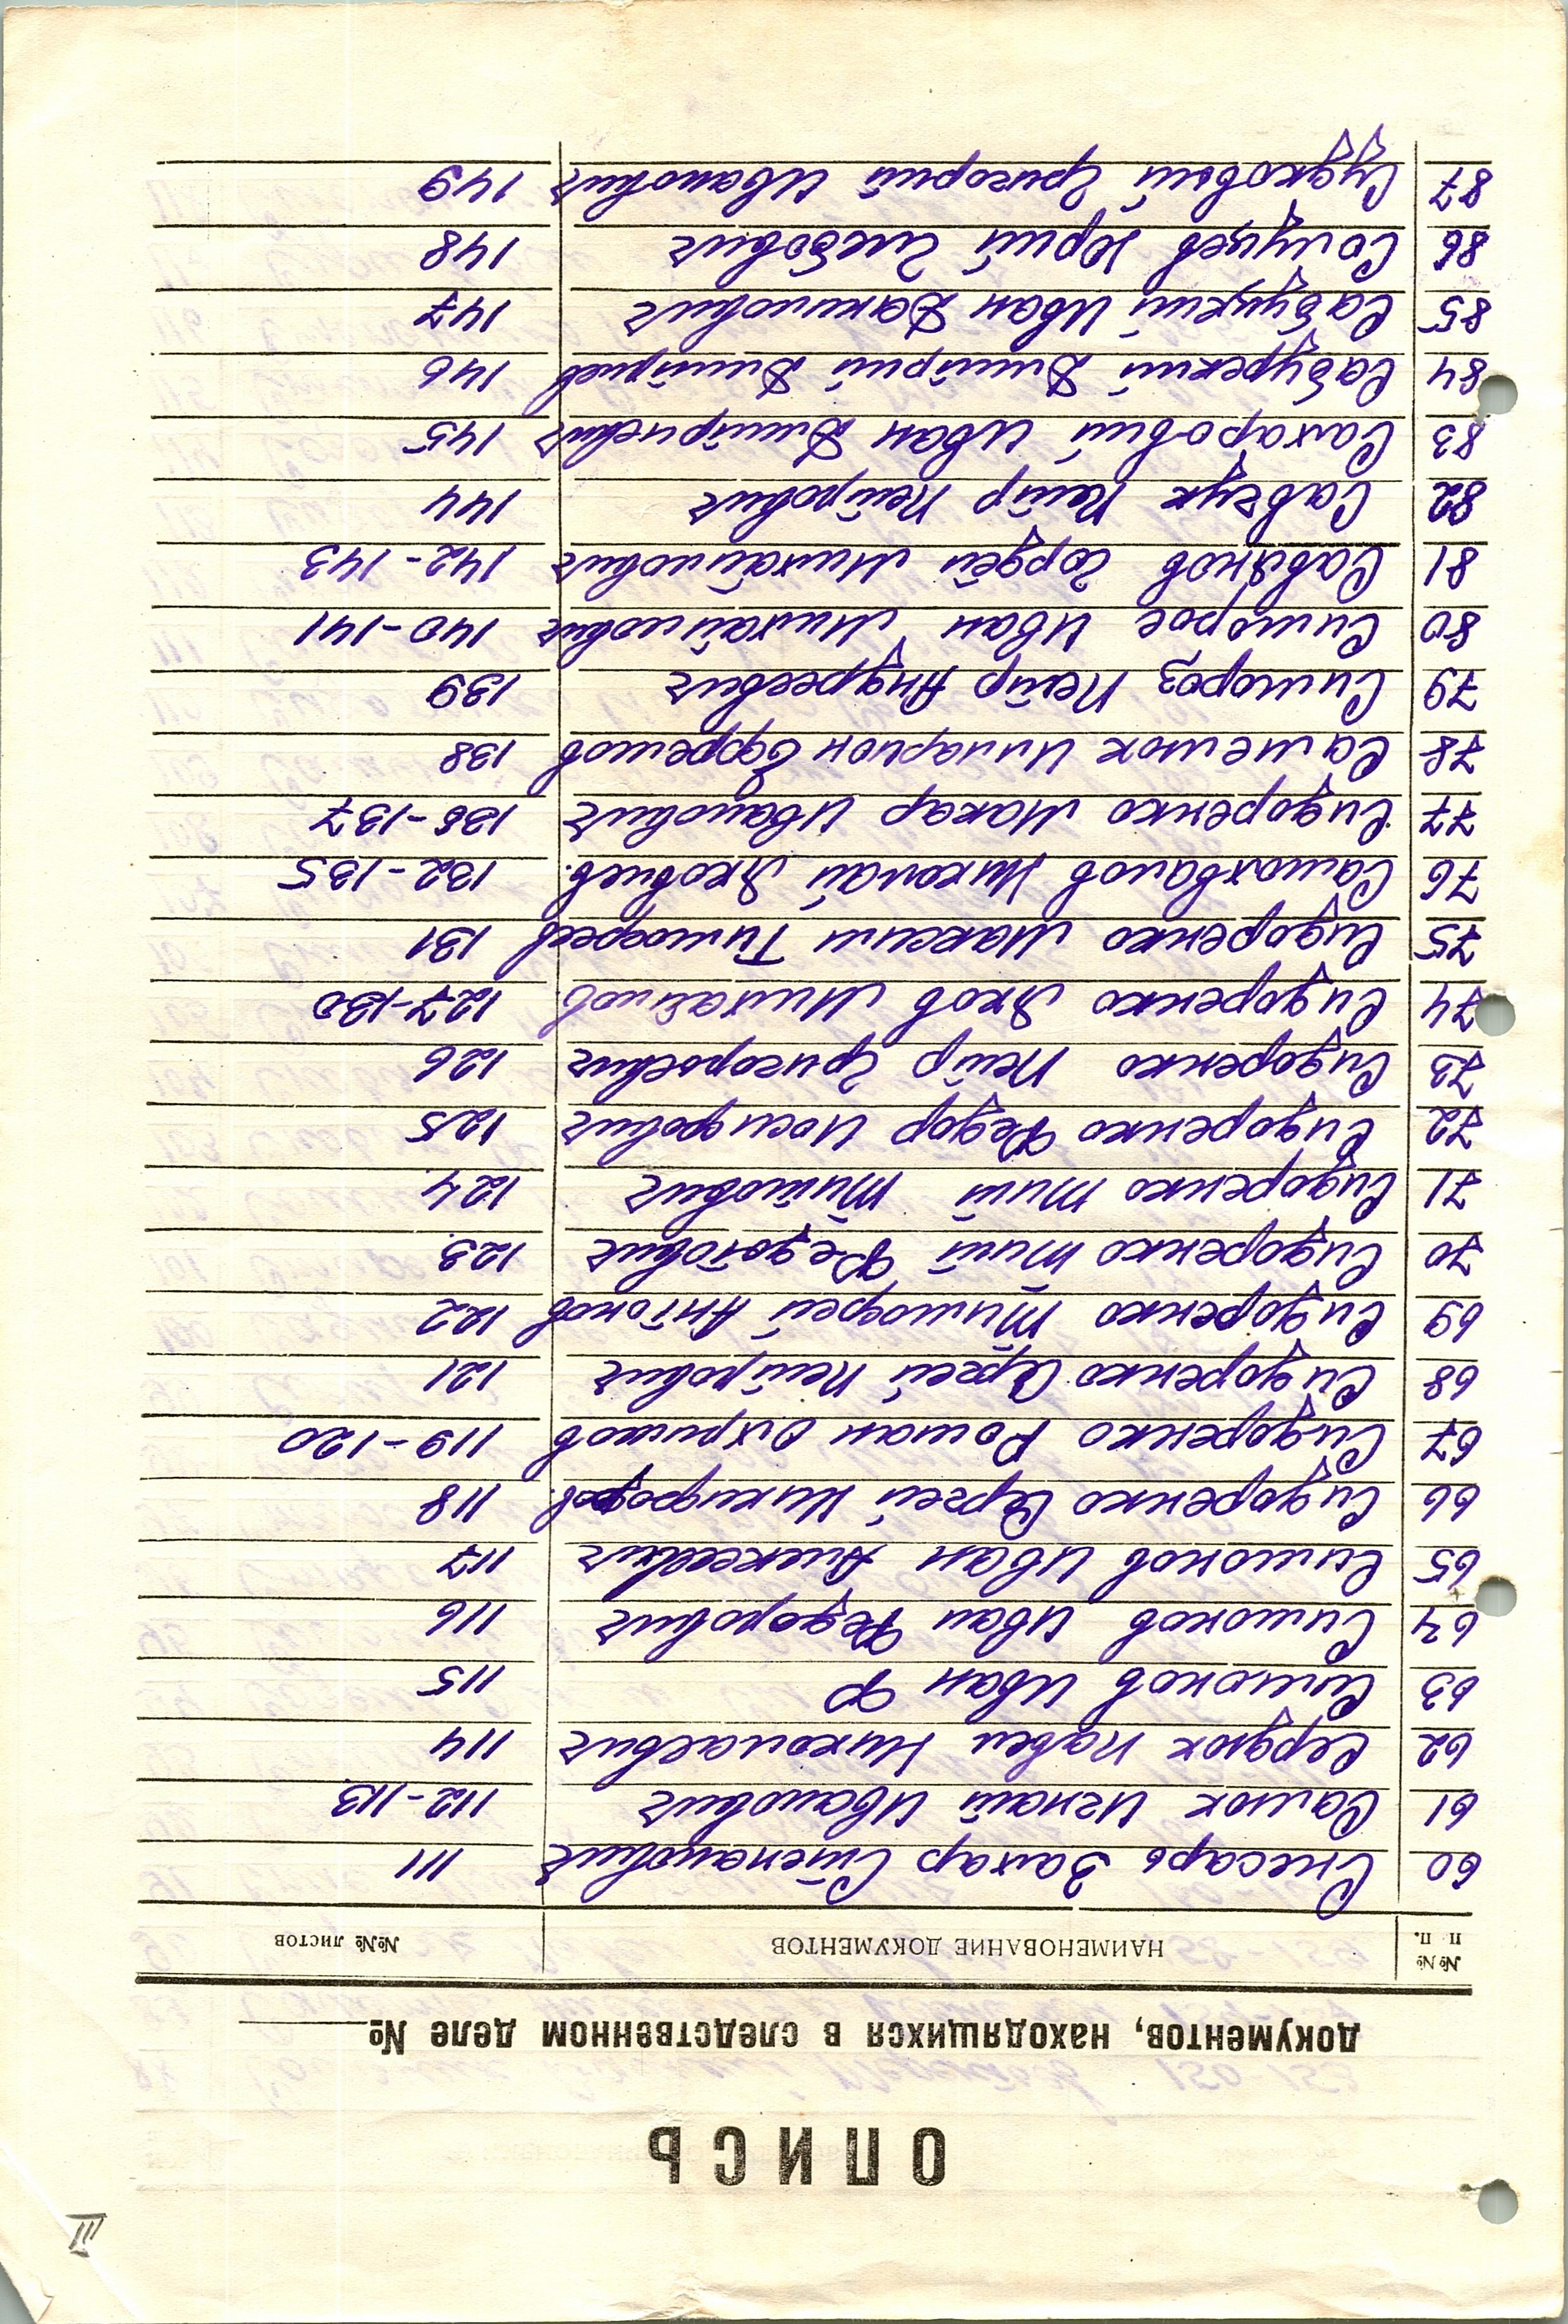 III
ОПИСЬ
документов, находящихся в следственном деле №
№№ п п. НАИМЕНОВАНИЕ ДОКУМЕНТОВ №№ листов
60 Слесарь Захар Степанович 111
61 Самок Игнат Иванович 112-113
62 Сердюк Павел Николаевич 114
63 Симонов Иван Ф 115
64 Симонов Иван Федорович 116
65 Симонов Иван Алексеевич 117
66 Сидоренко Сергей Никифоров. 118
67 Сидоренко Роман Охримов 119-120
68 Сидоренко Сергей Петрович 121
69 Сидоренко Тимофей Антонов 122
70 Сидоренко Тит Федотович 123
71 Сидоренко Тит Титович 124
72 Сидоренко Федор Иосифович 125
73 Сидоренко Петр Григорьевич 126
74 Сидоренко Яков Михайлов. 127-130
75 Сидоренко Максим Тимофеев 131
76 Самохвалов Николай Яковлев. 132-135
77 Сидоренко Макар Иванович 136-137
78 Илларион Ефремов 138
79 Симороз Петр Андреевич 139
80 Симорос Иван Михайлович 140-141
81 Савянов Гордей Михайлович 142-143
82 Савчук Петр Петрович 144
83 Сахаровий Иван Дмитриевич 145
84 Дмитрий Дмитриев 146
85 Савуцкий Иван Данилович 147
86 Солнцев Юрий Глебович 148
87 Судковый Григорий Иванович 149